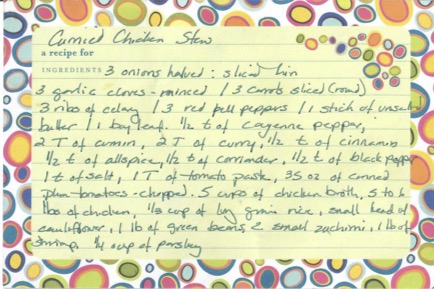 Curried Chicken Stew
a recipe for
INGREDIENTS 3 onions halved : sliced thin
3 garlic cloves - minced / 3 carrots sliced (rounds)
3 ribs of celery / 3 red bell peppers / 1 stick of unsalted
butter / 1 bay leaf. ½ t of cayenne pepper,
2 T of cumin, 2 T of curry, ½ t of cinnamin
½ t of allspice, ½ t of corriander, ½ t of black pepper
1 t of salt, 1 T of tomato paste, 35 oz of canned
plum tomatoes - chopped. 5 cups of chicken broth, 5 to 6
lbs of chicken, ⅓ cup of long grain rice, small head of
cauliflower, 1 lb of green beans, 2 small zuchinni, 1 lb of
shrimp, ¼ cup of parsley